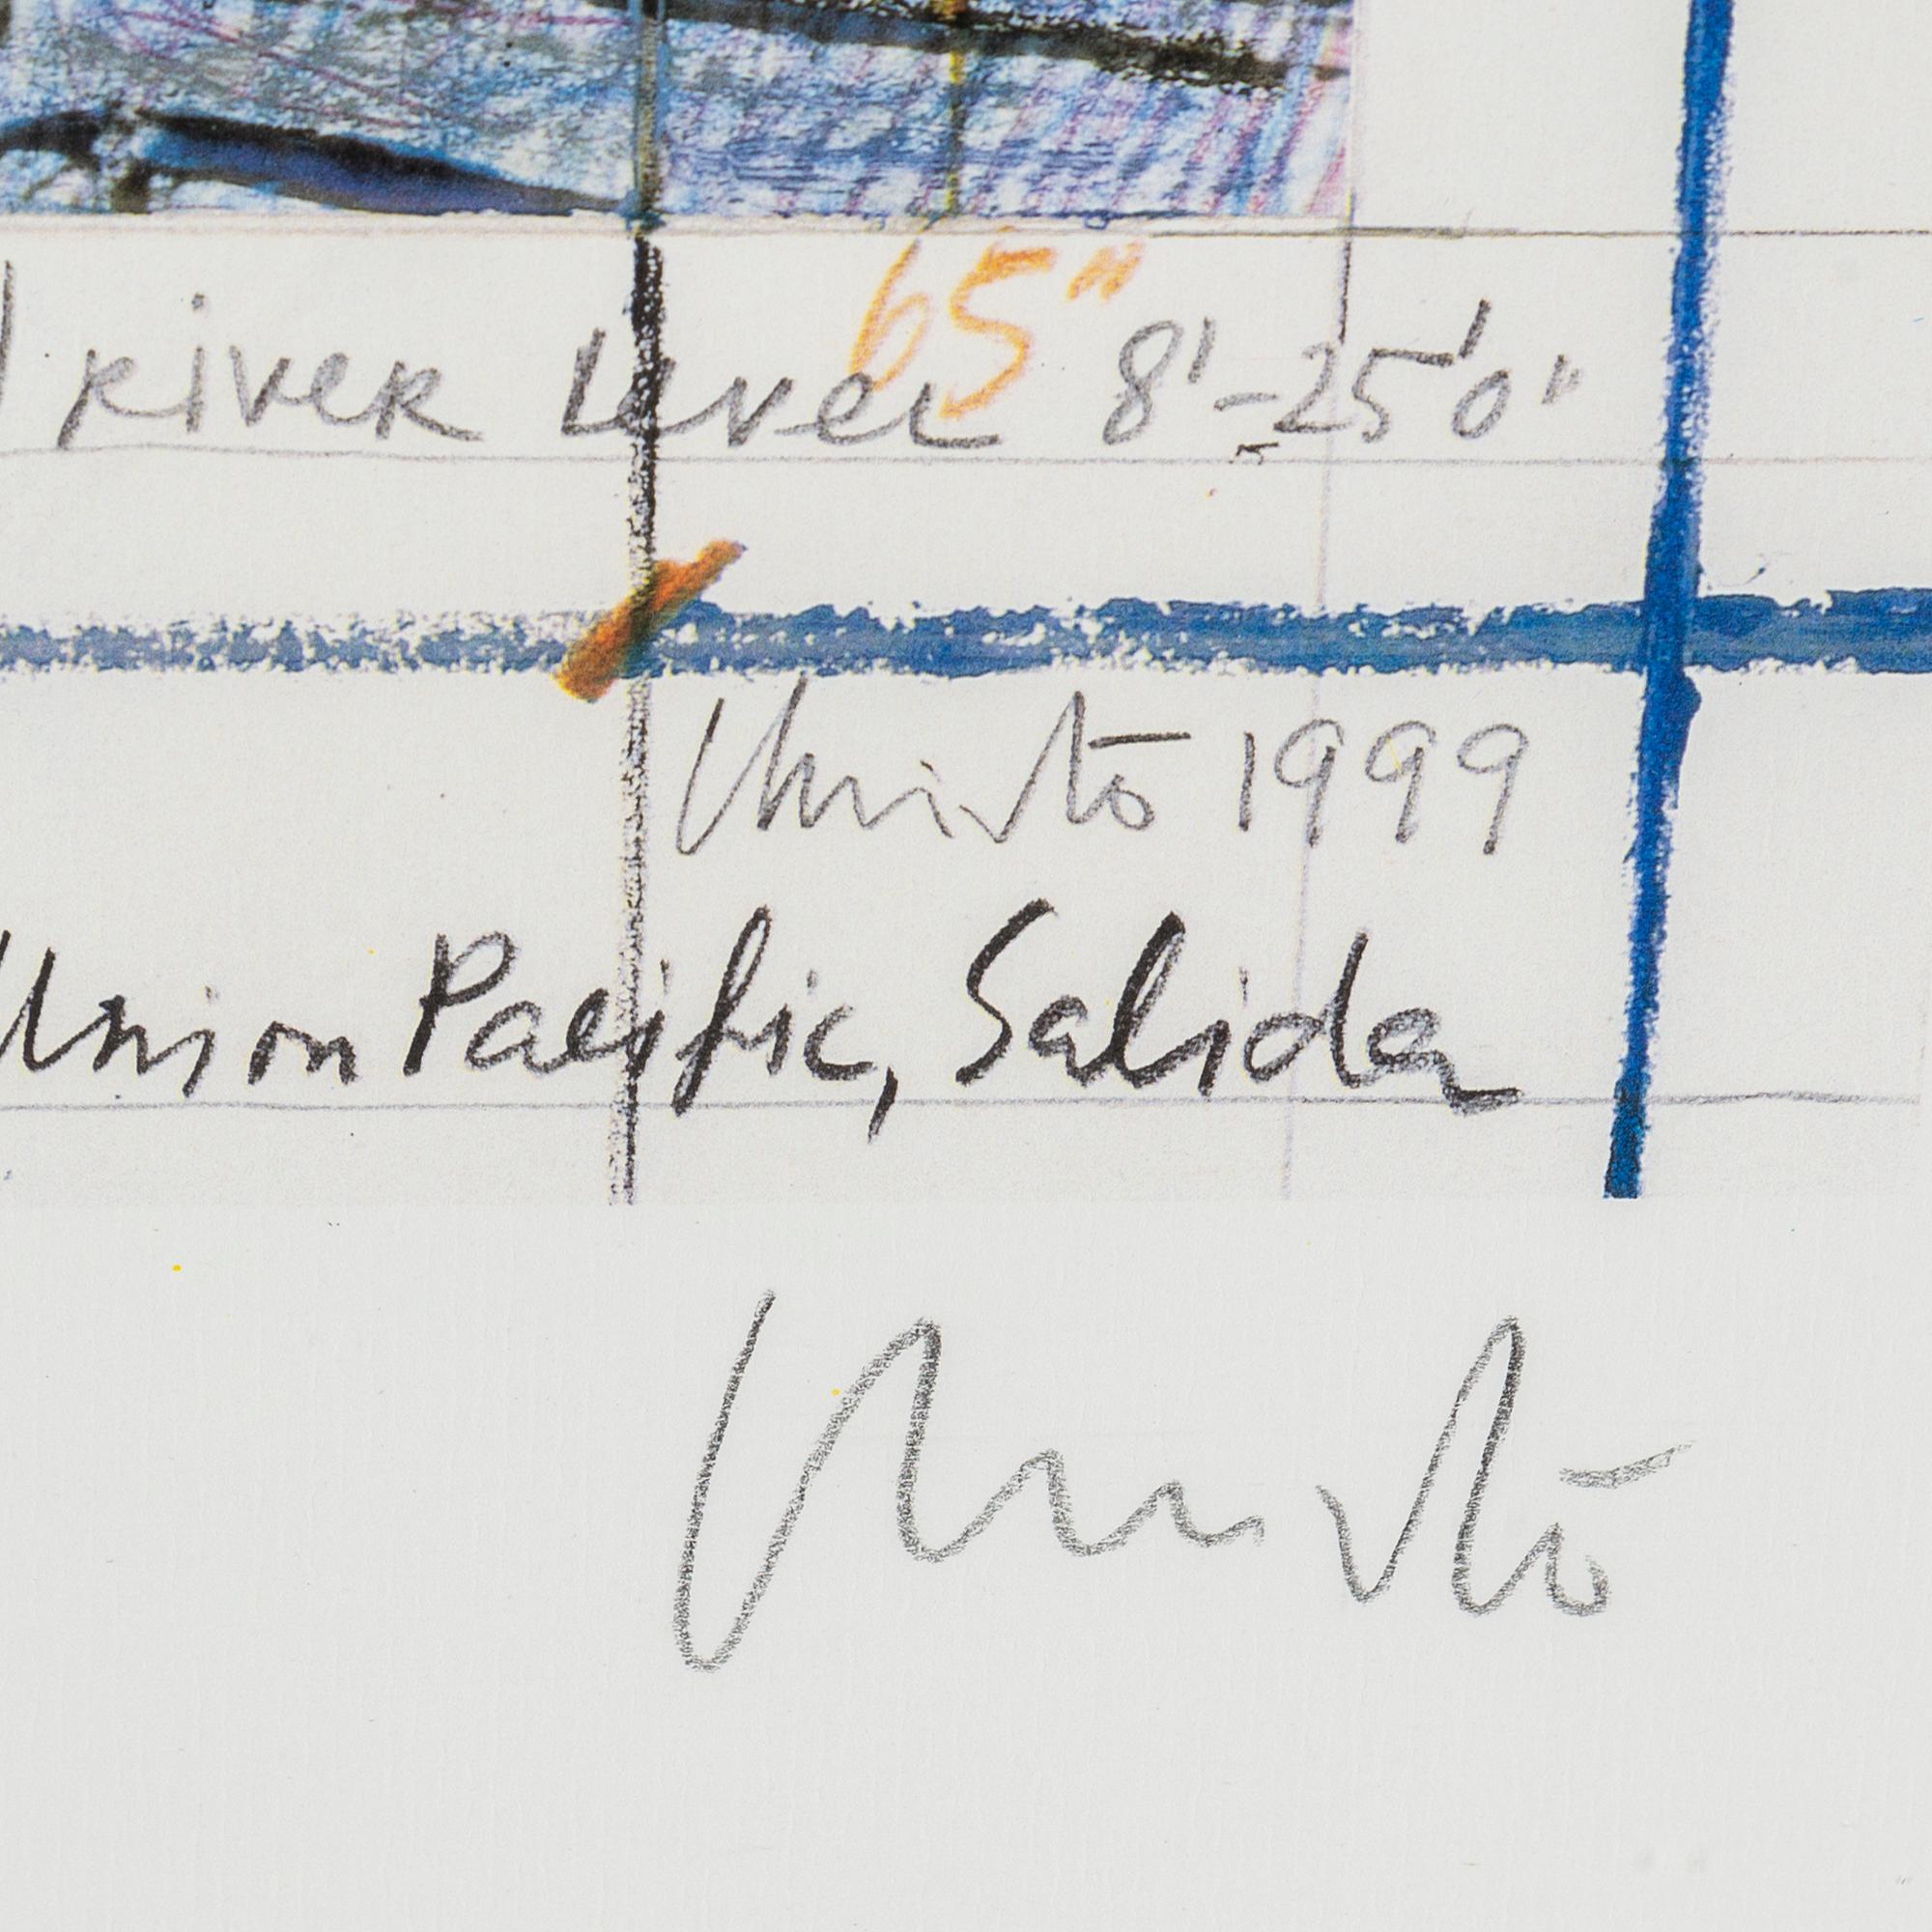 65"
River Level 8'-25'0"
Christo 1999
Union Pacific, Salida
Christo